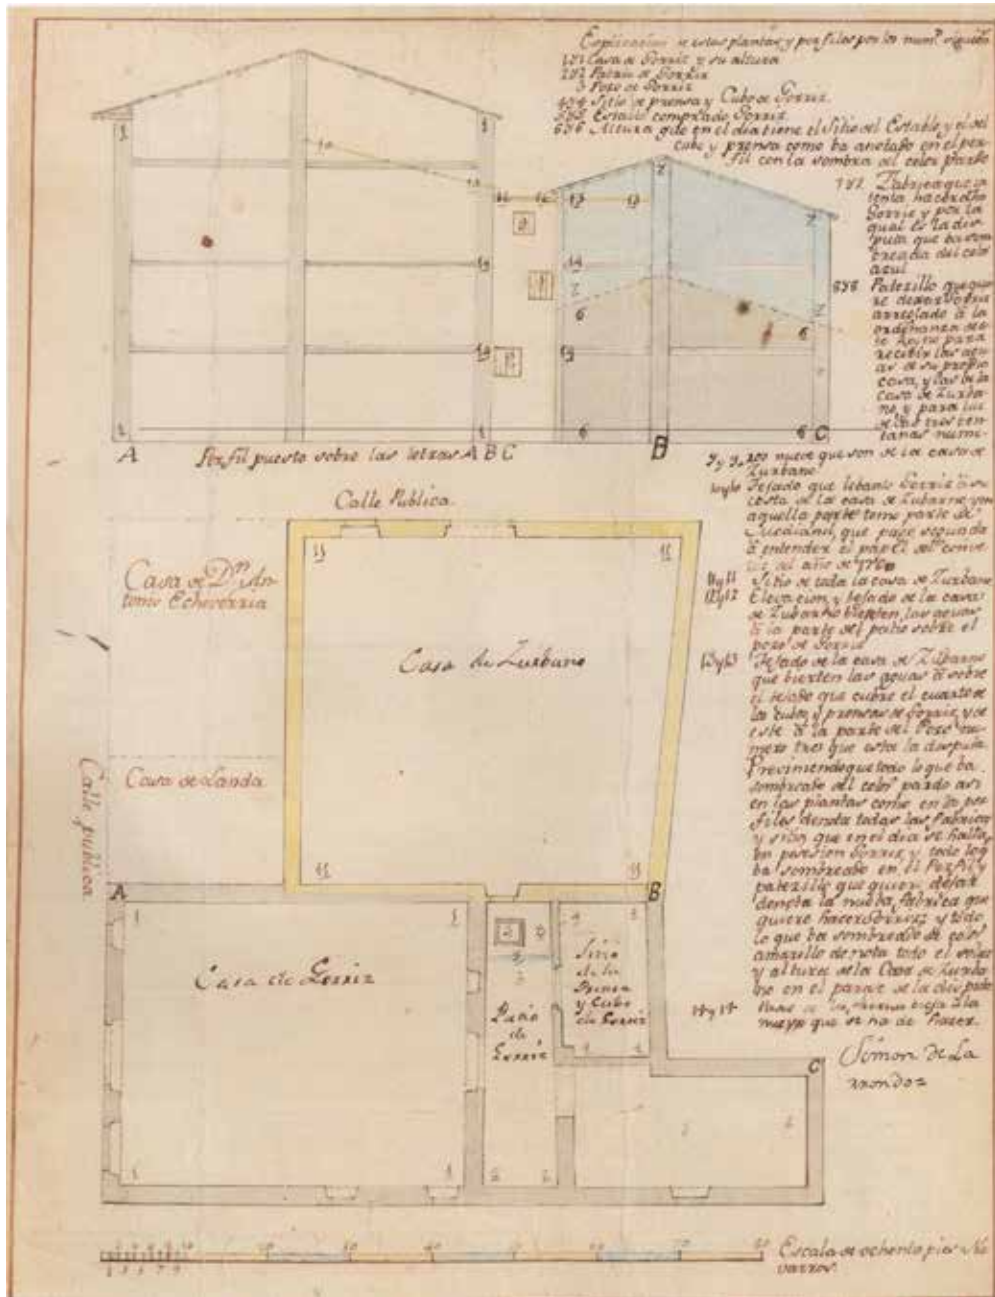 Esplicacion de estas plantas y perfiles por los num.s siguien
1 y 1 Casa de Gorriz y su altura
2 y 2 Patrio de Gorriz
3 Pozo de Gorriz
4 y 4 Sitio de prensa y Cubo de Gorriz.
5 y 5 Establo comprado Gorriz
6 y 6 Altura que en el dia tiene el Sitio del Establo y el del
cubo y prensa como ba anotado en el per
fil con la sombra del color pardo
7 y 7 Fabrica que in
tenta hacer dho
Gorriz y por la
qual es la dis
puta que ba som
breada del color
azul
8 y 8 Patezillo que quie
re dexar Gorriz
arreglado à la
ordenanza de es
te Reyno para
recibir las agu
as de su propia
casa, y las de la
casa de Zurba
no, y para luz
de las tres ven
tanas nume
9 y 9, ro nueve que son de la casa de
Zurbano
10 y 10 Tejado que lebanto Gorriz à su
costa de la casa de Zubarno, y en
aquella parte tomo parte de
que
à entender el papel del conve
nio del año de
11 y 11 Sitio de toda la casa de Zurbano
12 y 12 Elevacion, y tejado de la casa
de Zubarno bierten las aguas
à la parte del patio sobre el
pozo de Gorriz
13 y 13 Tejado de la casa de Zubarno
que bierten las aguas à sobre
el tejado que cubre el cuarto de
la cuba, y prensas de Gorriz, y de
este à la parte del Pozo nu
mero tres que esta la disputa
Previniendo que todo lo que ba
sombreado del color pardo asi
en las plantas como en los per
files denota todas las fabricas
y sitios que en el dia se halla
en posesion Gorriz, y todo lo q
ba sombreado en el Perfil y
patezillo que quiere dejar
denota la nueba fabrica que
quiere hacer Gorriz; y todo
lo que ba sombreado de color
amarillo denota todo el solar
y altura de la Casa de Zurba
no en el paraje de la disputa
14 y 14 vieja à la
nueva que se ha de hacer.
Simon de La
rrondoz
Perfil puesto sobre las letras A B C
A B C B C
Calle Publica.
Casa de Dn An
tonio Echeverria
Casa de Zurbano
Casa de Landa
Calle publica
A B
Casa de Gorriz
Patio
de
Gorriz
Sitio
de la
Prensa
y Cubo
de Gorriz
C
Escala de ochenta pies Na
varros.